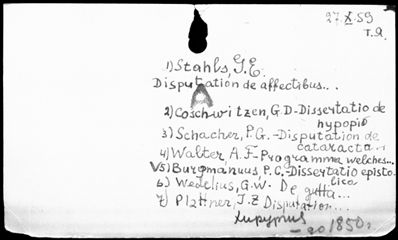 27.X.59
T.Я.
1) Stahls, G.E.
Disputation de affectibus...
A
2) Coschwitzen, G D-Dissertatio de
hypopio
3) Schacher, P.G.-Disputation de
cataracta..
4) Walter, A.F-Programma welches...
V5) Burgmanuus, P.C.-Dissertatio episto-
lica
6) Wedelius, G.W. De gutta...
7) Plattner, J.Z Disputation...
хирурги
-го 1850г